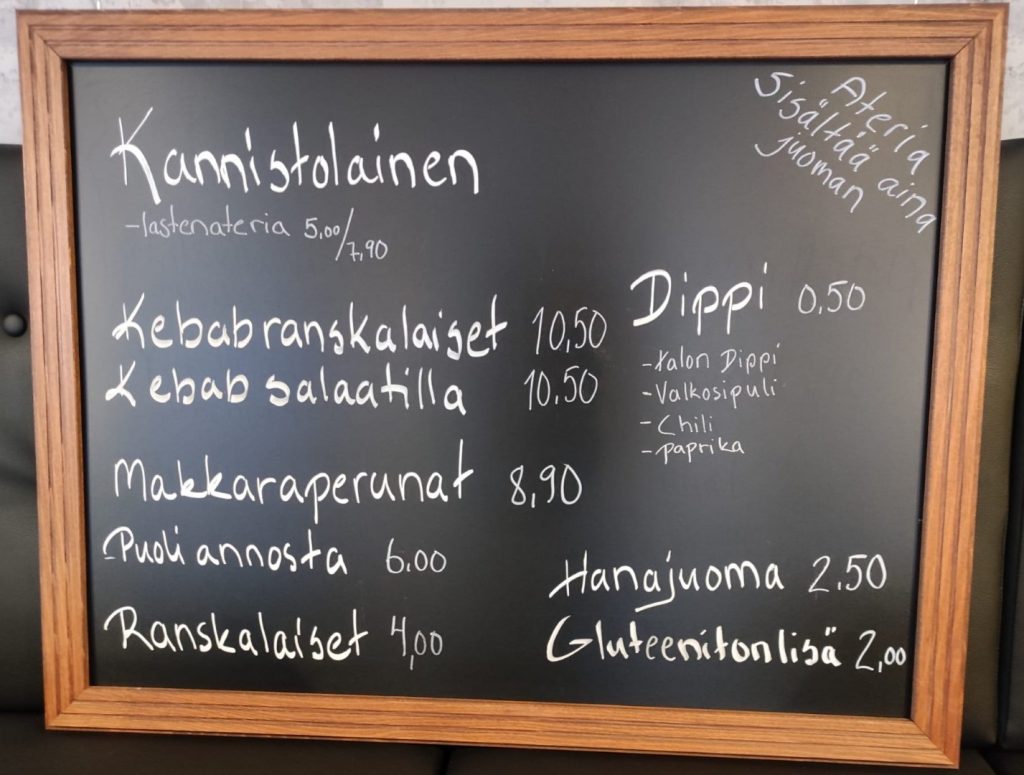 Ateria
sisältää aina
juoman
Kannistolainen
-lastenateria 5,00/7,90
Kebabranskalaiset 10,50
Kebab salaatilla 10,50
Makkaraperunat 8,90
-Puoli annosta 6.00
Ranskalaiset 4,00
Dippi 0,50
-talon Dippi
-Valkosipuli
-Chili
-paprika
Hanajuoma 2.50
Gluteenitonlisä 2,00